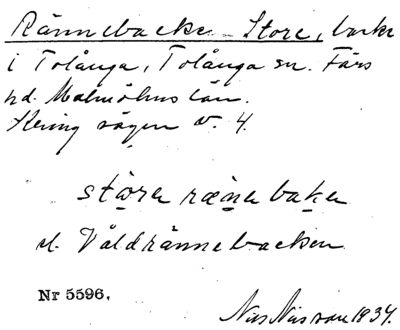 Rännebacke Store, backe
i Tolånga, Tolånga sn. Färs
hd. Malmöhus län.
Kring vägen v. 4.
störe rænebaken
el. Våldrännebacken
Nr 5596.
Nils Nilsson 1934.